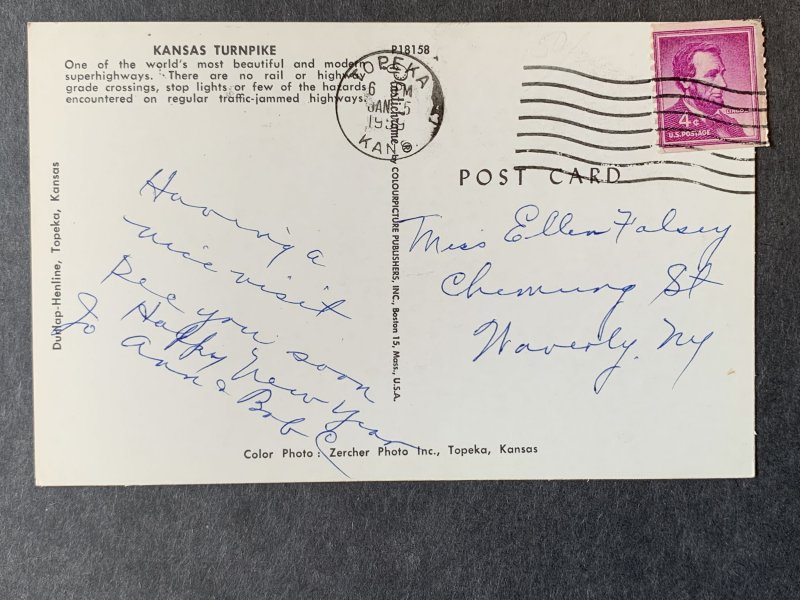 KANSAS TURNPIKE
One of the world's most beautiful and modern
superhighways. There are no rail or highway
grade crossings, stop lights or few of the hazards
encountered on regular traffic-jammed highways.
P18158
TOPEKA
6 PM
JAN 5
KAN
4¢
U.S. POSTAGE
POST CARD
Plastichrome ® by COLOURPICTURE PUBLISHERS, INC., Boston 15, Mass., U.S.A.
Dunlap-Henline, Topeka, Kansas
Having a
nice visit
See you soon
Happy New Year
Jo Ann & Bob C
Miss Ellen Falsey
Chemung St
Waverly, NY
Color Photo: Zercher Photo Inc., Topeka, Kansas